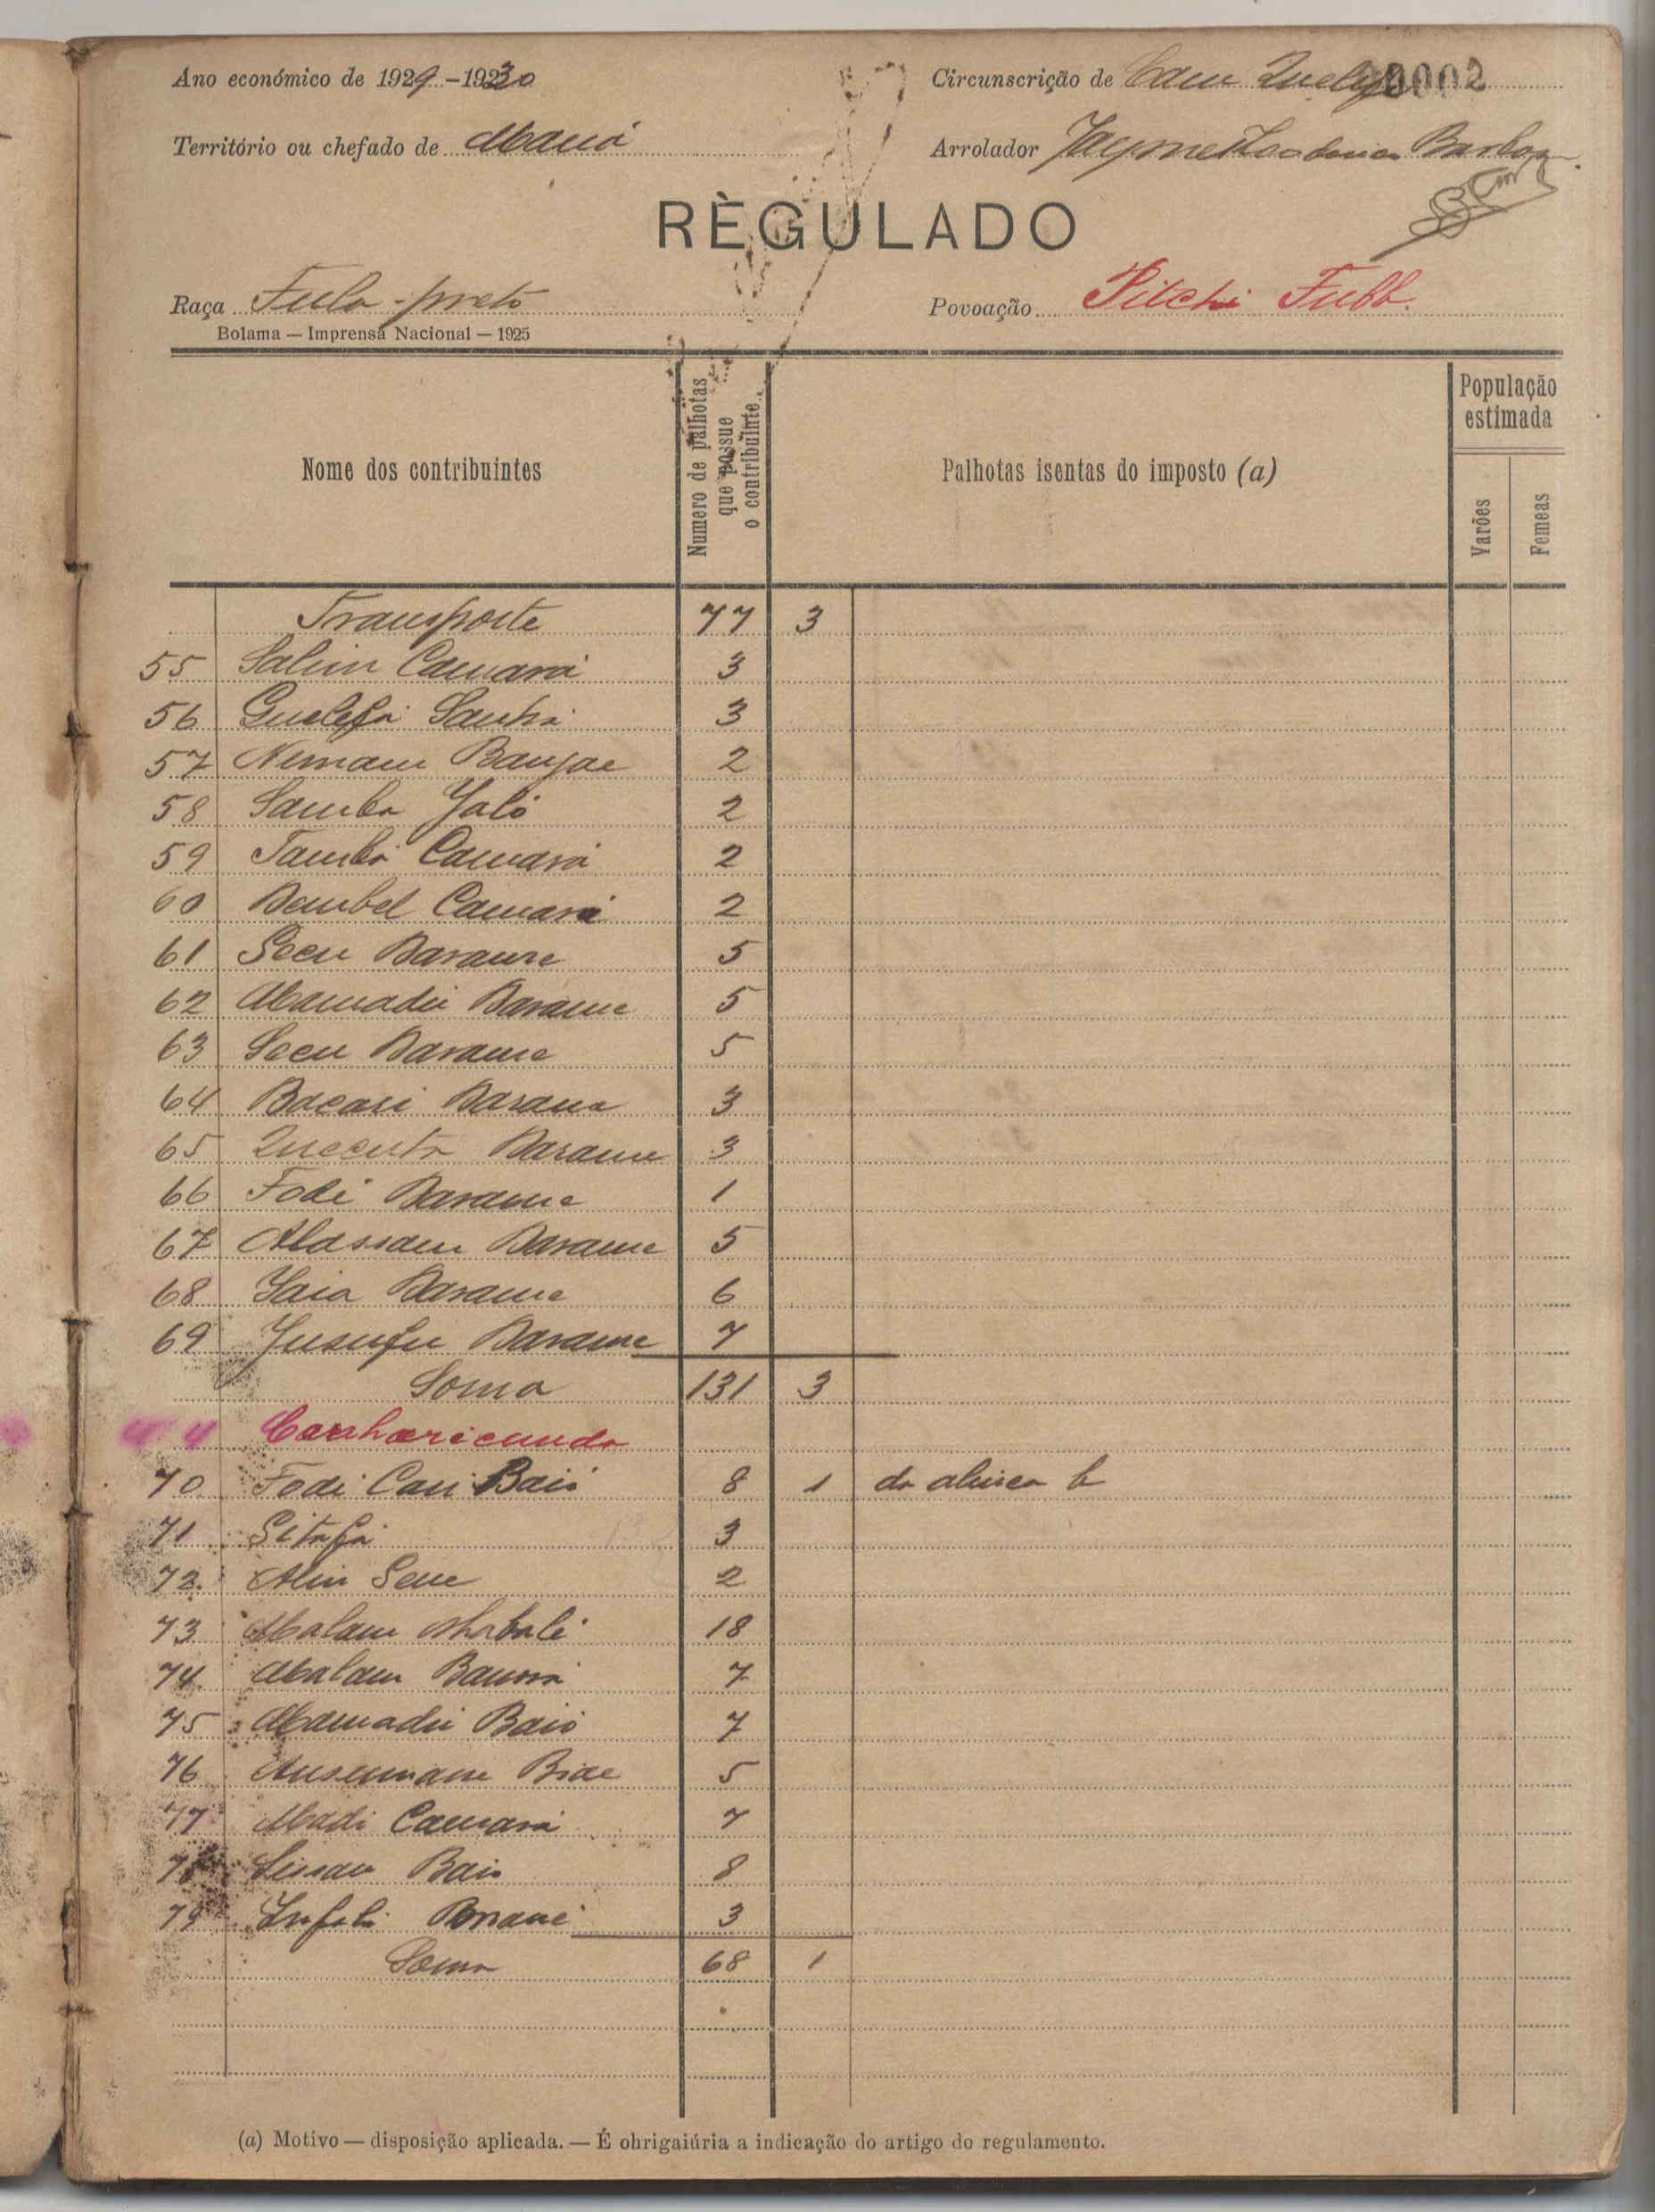 Ano económico de 1929-1930
Circunscrição de 0002
Território ou chefado de Maná
Arrolador Jayme Barbosa
RÈGULADO
Raça Fula-preto
Povoação Pitchi Fubb.
Bolama — Imprensa Nacional — 1925
Nome dos contribuintes
Numero de palhotas que possue o contribuinte
Palhotas isentas do imposto (a)
População estimada
Varões
Femeas
Transporte 77 3
55 Salim Camará 3
56 Guelefá Sanhá 3
57 Nemam Banjae 2
58 Samba Jaló 2
59 Tambá Camará 2
60 Dembel Camará 2
61 Secu Darame 5
62 Mamadú Darame 5
63 Secu Darame 5
64 Bacari Darame 3
65 Quecuta Darame 3
66 Fodi Darame 1
67 Alassam Darame 5
68 Jaia Darame 6
69 Jusufu Darame 7
Soma 131 3
4 Canharicunda
70 Fodi Cari Baió 8 1 da alinea b
71 Sitafá 3
72 Alin Sene 2
73 Malam 18
74 Malam 7
75 Mamadú Baió 7
76 Ansumane Biae 5
77 Madi Camará 7
78 Baio 8
79 Infali Mané 3
Soma 68 1
(a) Motivo — disposição aplicada. — É obrigaiúria a indicação do artigo do regulamento.